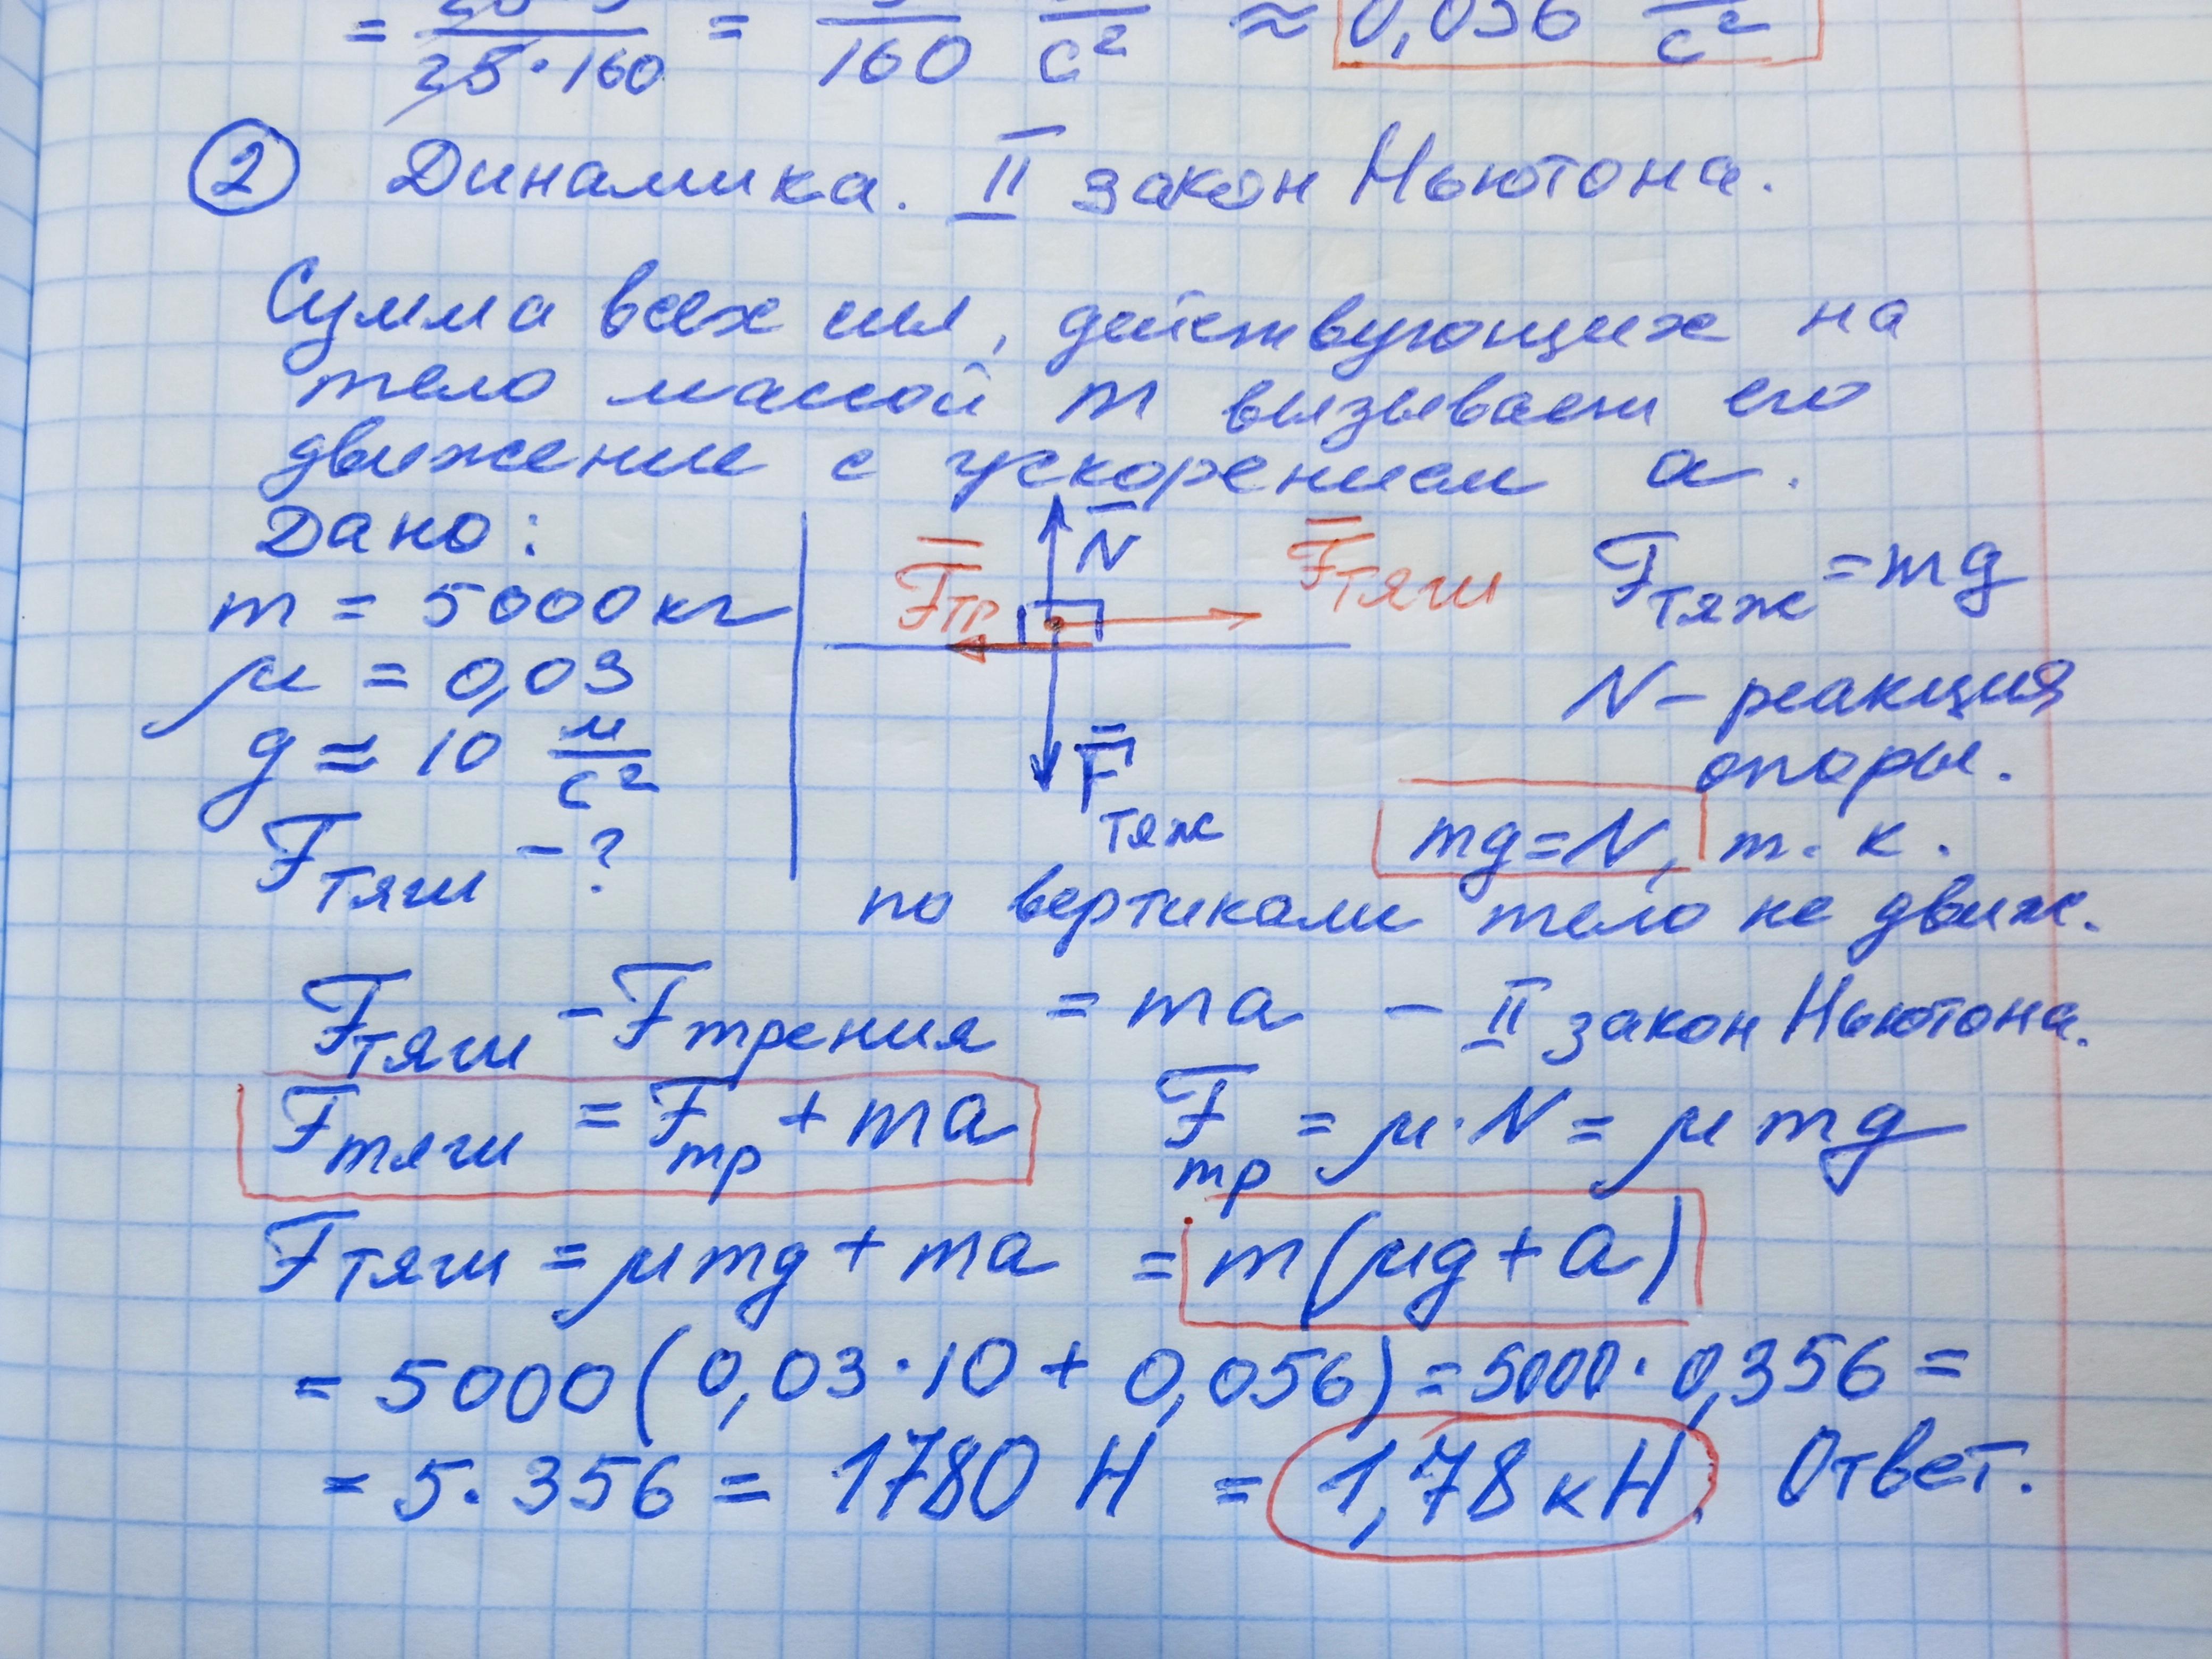 = 25·160 = 160 с² ≈ 0,056 с²
② Динамика. II закон Ньютона.
Сумма всех сил, действующих на
тело массой m вызывает его
движение с ускорением a.
Дано:
m = 5000 кг
μ = 0,03
g ≈ 10 м/с²
Fтяги - ?
N̄
F̄тр
F̄тяги
F̄тяж
Fтяж = mg
N - реакция
опоры.
mg = N, т. к.
по вертикали тело не движ.
Fтяги - Fтрения = ma - II закон Ньютона.
Fтяги = Fтр + ma Fтр = μ·N = μmg
Fтяги = μmg + ma = m(μg + a)
= 5000(0,03·10 + 0,056) = 5000·0,356 =
= 5·356 = 1780 Н = 1,78 кН. Ответ.